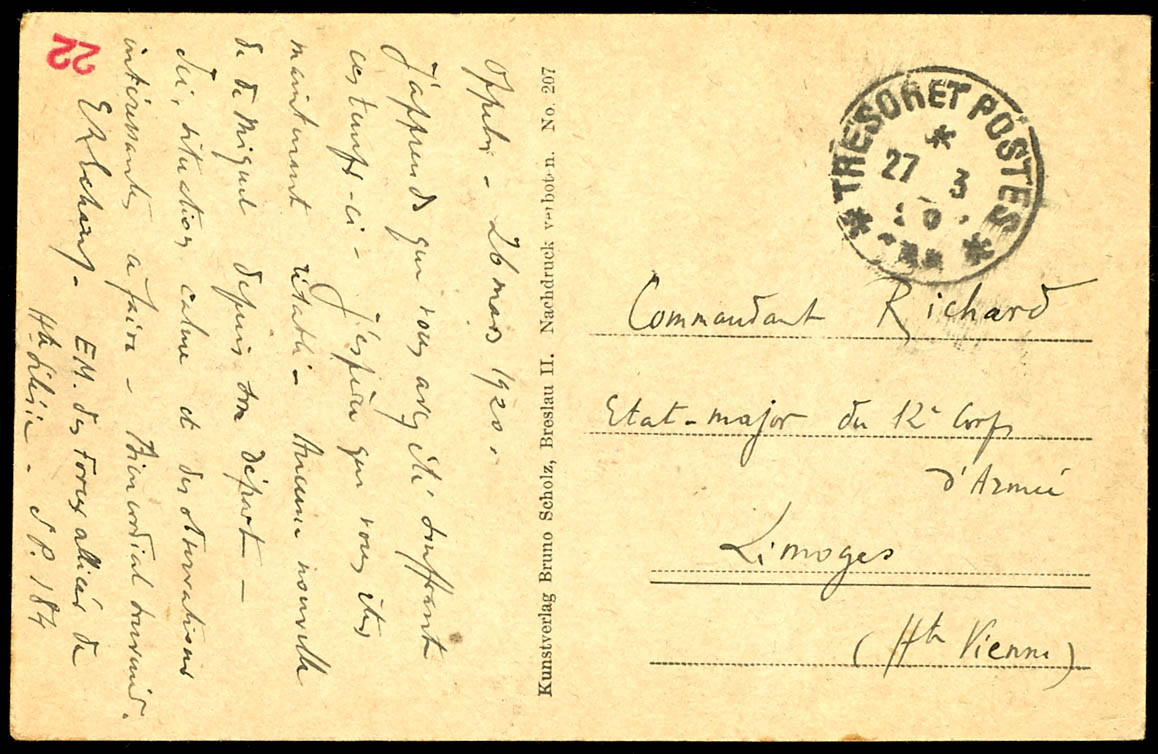 Oppeln - 26 mars 1920.
J'apprends que vous avez été souffrant
ces temps-ci - J'espère que vous êtes
maintenant rétabli - Aucune nouvelle
de de Miguel depuis son départ -
Ici, situation calme et des observations
intéressantes à faire - Bien cordial souvenir.
EM. des Forces alliées de
Hte Silésie - S.P. 184
22
Kunstverlag Bruno Scholz, Breslau II. Nachdruck verboten. No. 207
TRESOR ET POSTES
27 3
20
Commandant Richard
Etat-major du 12e Corps
d'Armée
Limoges
(Hte Vienne)